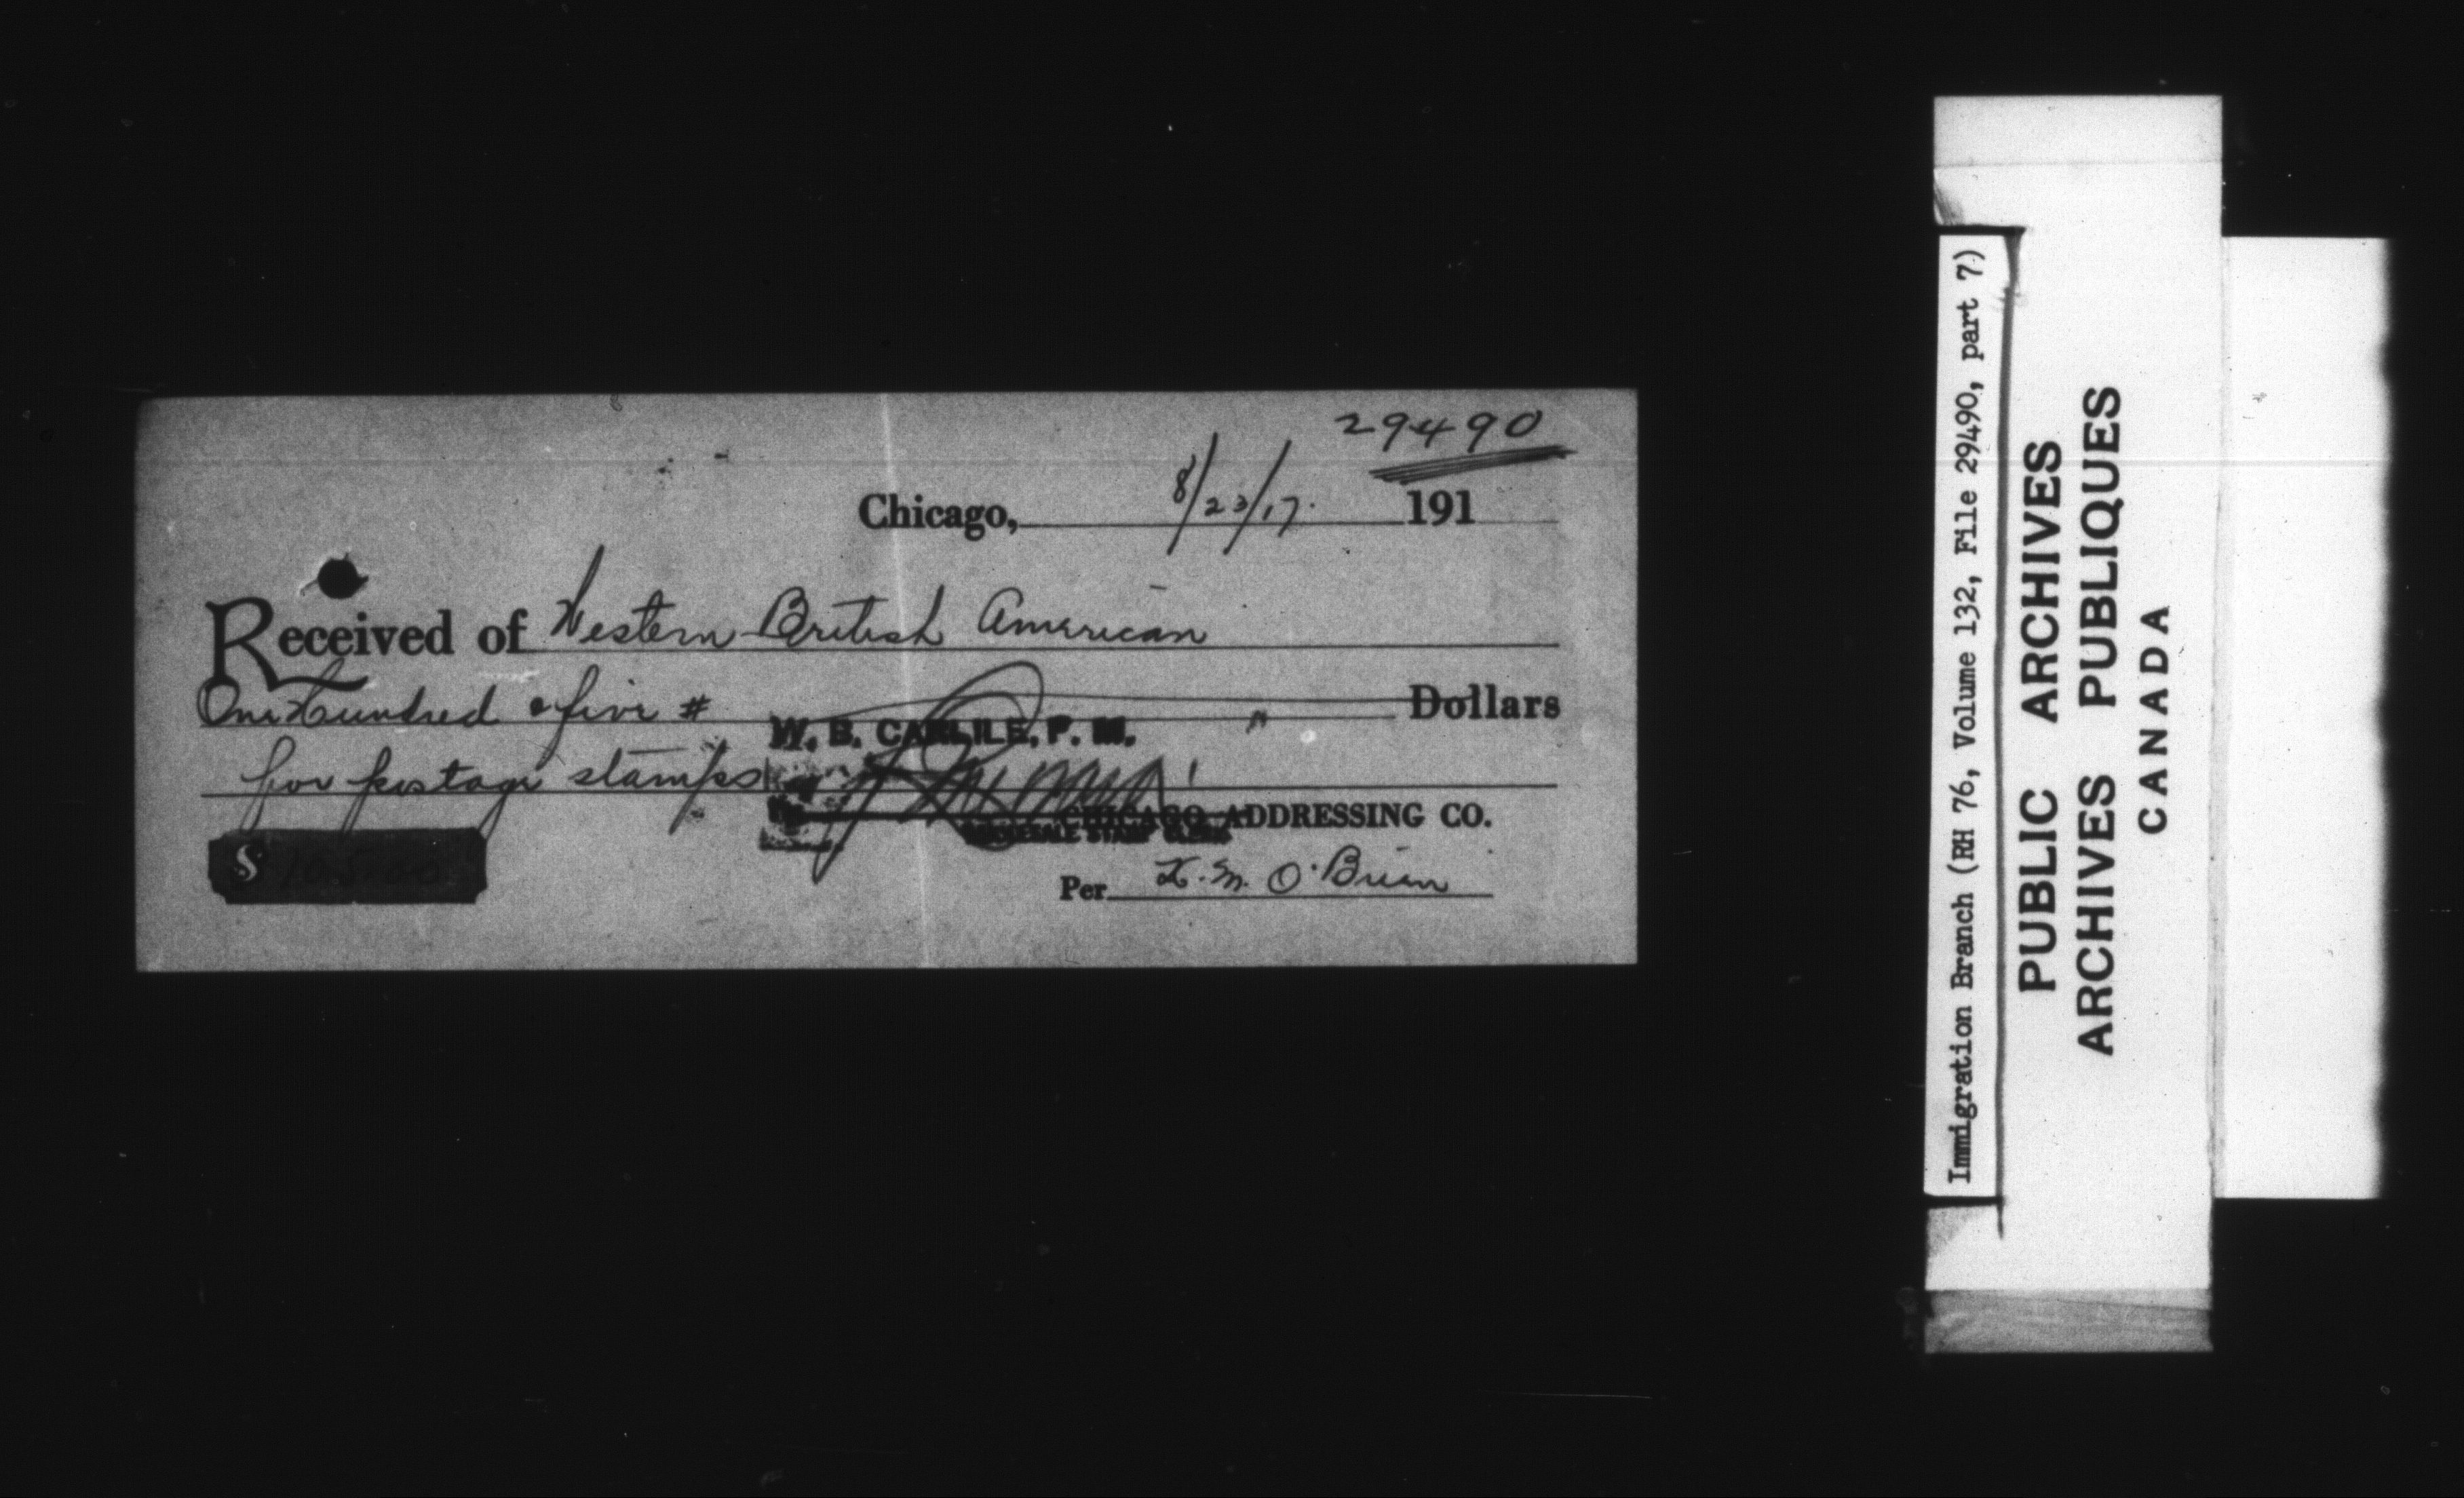 29490
Chicago, 8/23/17. 191
Received of Western British American
One Hundred & five # Dollars
W. B. CARLILE, P. M.
for postage stamps
CHICAGO ADDRESSING CO.
WHOLESALE STAMP CLERK
$ 105.00
Per O'Brien
Immigration Branch (RH 76, Volume 132, File 29490, part 7)
PUBLIC ARCHIVES
ARCHIVES PUBLIQUES
CANADA